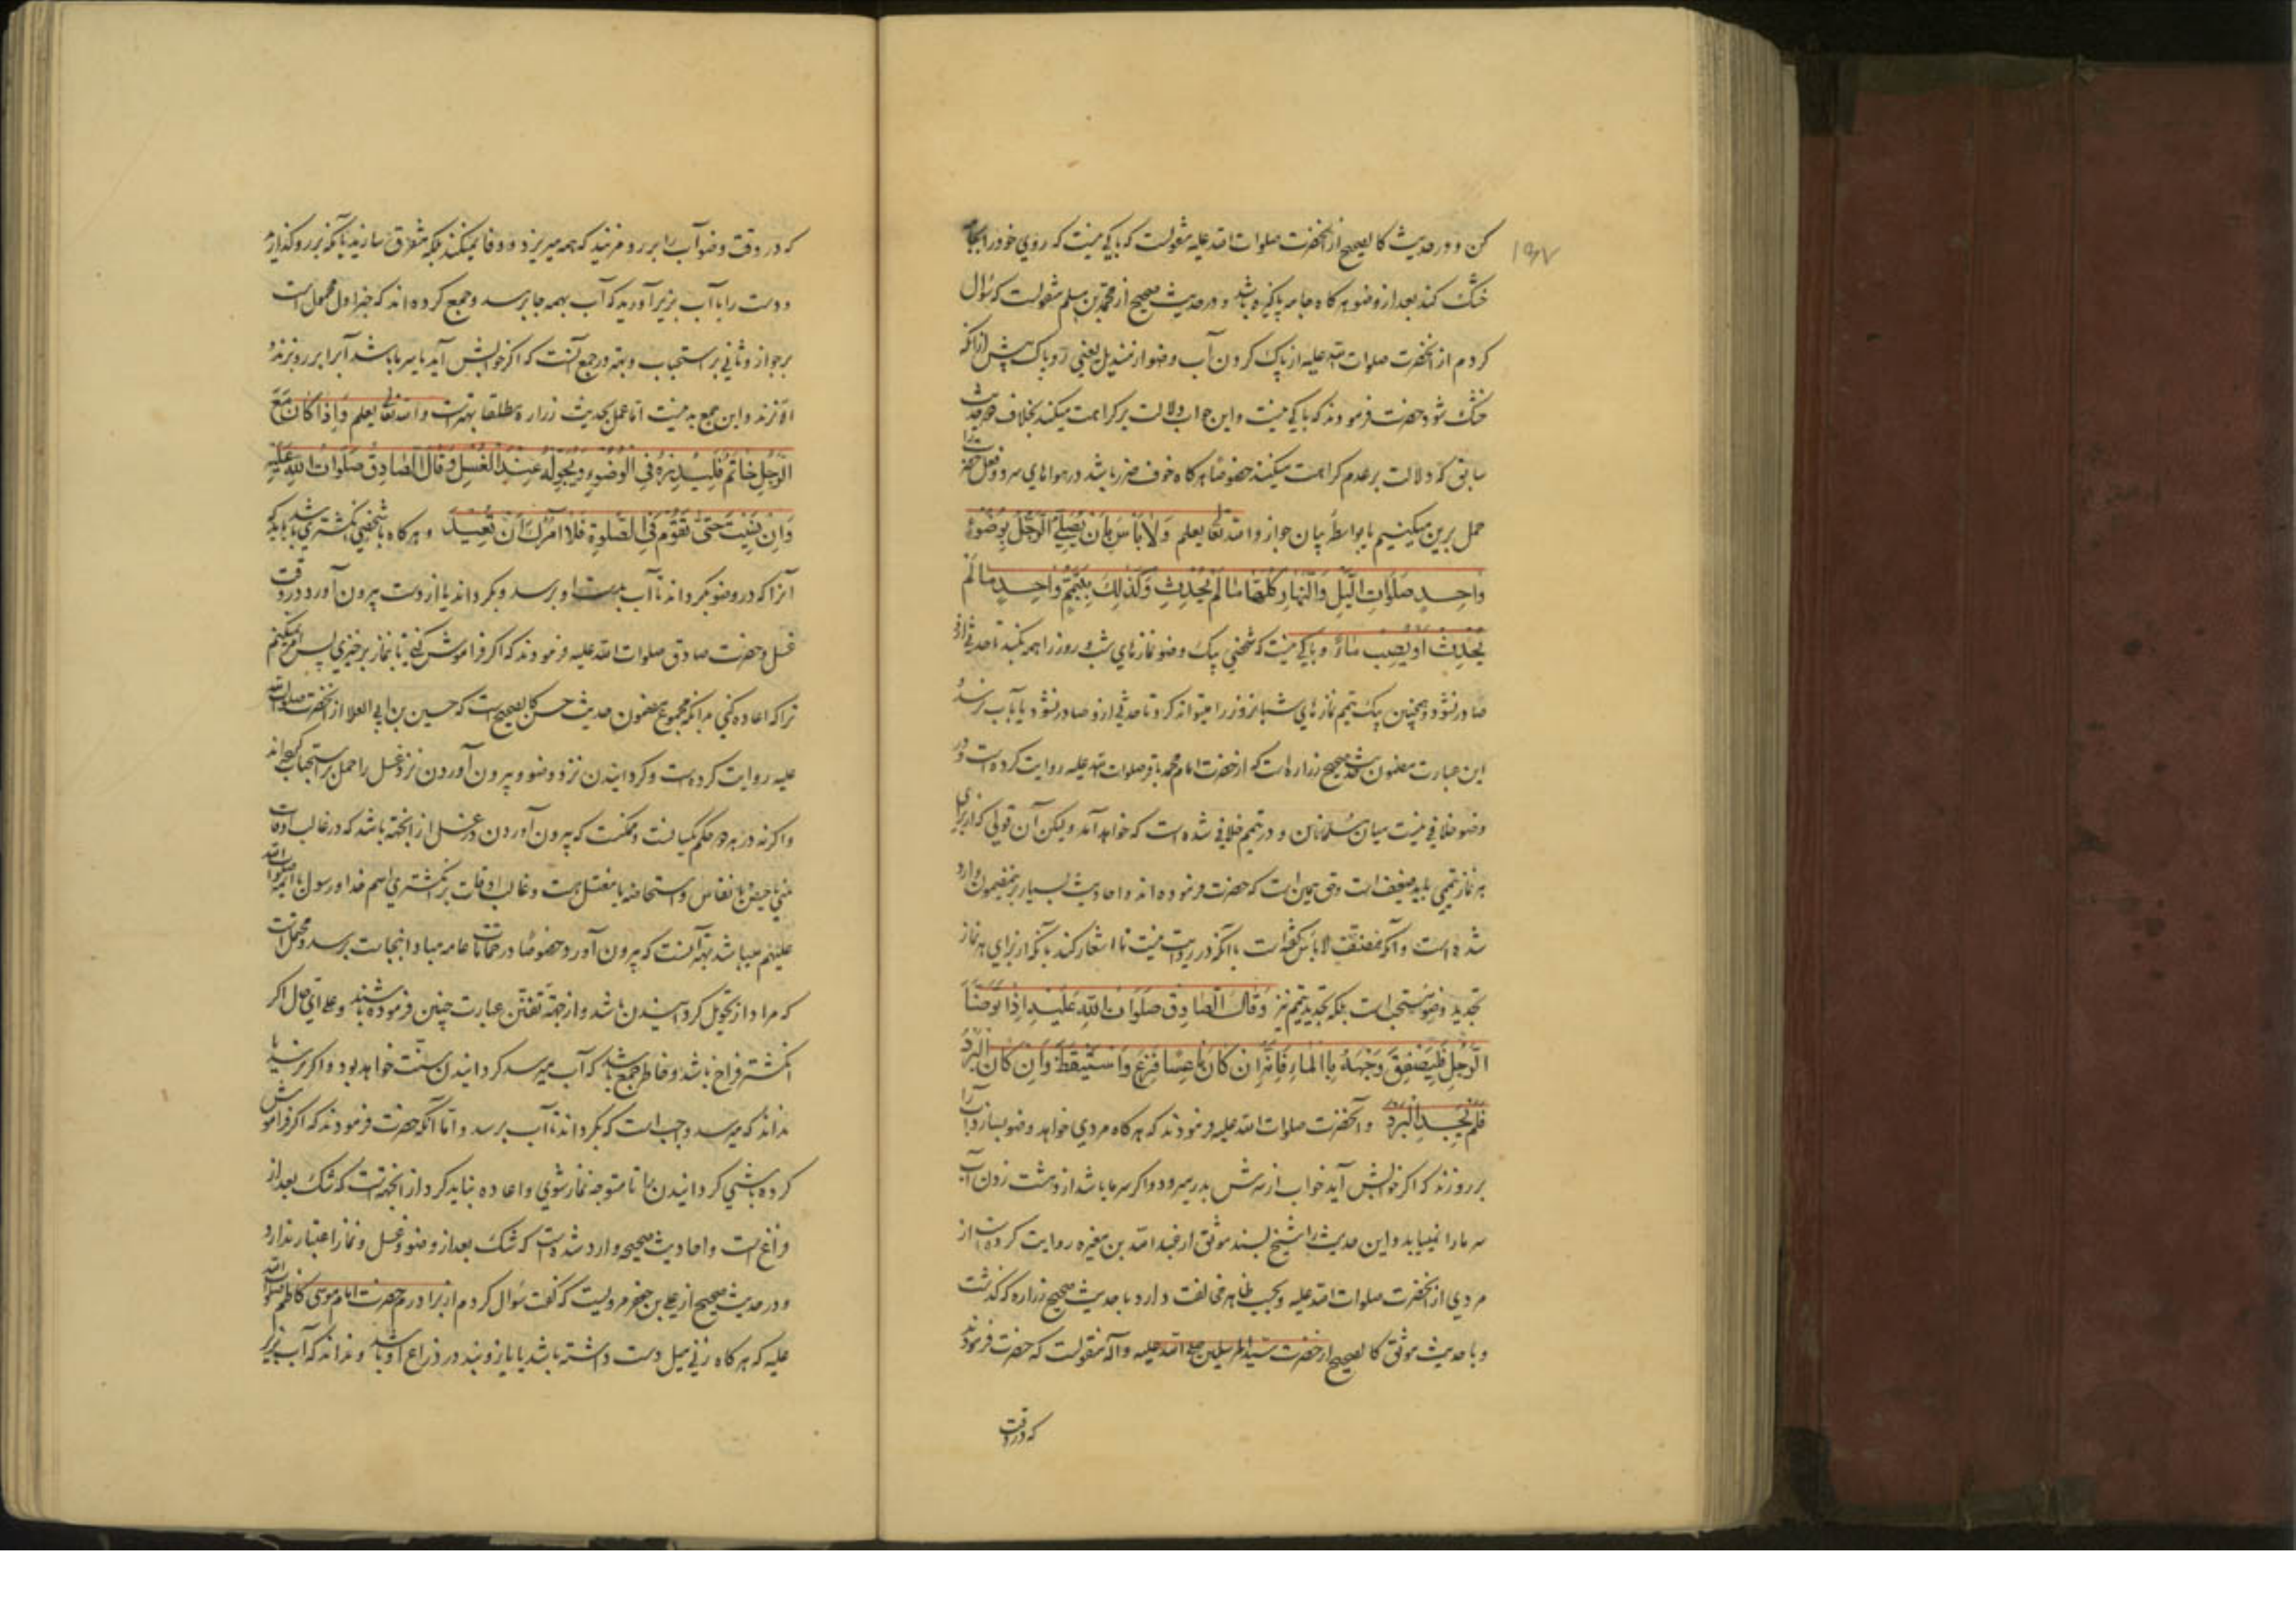 کن و در حدیث کالصحیح از آنحضرت صلوات الله علیه منقولست که باکی نیست که روی خود را بجامه
خشک کند بعد از وضو هرگاه جامه پاکیزه باشد و در حدیث صحیح از محمد بن مسلم منقولست که سؤال
کردم از آنحضرت صلوات الله علیه از پاک کردن آب وضو از مندیل یعنی روپاک پیش از آنکه
خشک شود حضرت فرمودند که باکی نیست و این جواب دلالت بر کراهت میکند بخلاف حدیث
سابق که دلالت بر عدم کراهت میکند خصوصا هرگاه خوف ضرر باشد در هواهای سرد و فعل حضرت را
حمل برین میکنیم یا بواسطهٔ بیان جواز و الله تعالی یعلم وَلا بَأسَ بِأَن یُصَلِّیَ الرَّجُلُ بِوُضُوءٍ
واحِدٍ صَلَواتِ اللَّیلِ وَالنَّهارِ کُلَّها ما لَم یُحدِث وَکَذلِکَ بِتَیَمُّمٍ واحِدٍ ما لَم
یُحدِث اَو یُصِیب ماءً و باکی نیست که شخصی بیک وضو نمازهای شب و روز را همه بکند تا حدثی ازو
صادر نشود و همچنین بیک تیمم نمازهای شبانروز را میتواند کرد تا حدثی ازو صادر نشود یا بآب نرسد و
این عبارت مضمون حدیث صحیح زراره است که از حضرت امام محمد باقر صلوات الله علیه روایت کرده است و در
وضو خلافی نیست میان مسلمانان و در تیمم خلافی شده است که خواهد آمد ولیکن آن قولی که از برای
هر نماز تیممی باید ضعیف است و حق همین است که حضرت فرموده اند و احادیث بسیار برینمضمون وارد
شده است و آنکه مصنف لا بأس گفته است با آنکه در روایت نیست تا اشعار کند بآنکه از برای هر نماز
تجدید وضو مستحب است بلکه تجدید تیمم نیز وَقالَ الصّادِقُ صَلَواتُ اللهِ عَلَیهِ اِذا تَوَضَّأَ
الرَّجُلُ فَلیَصفِق وَجهَهُ بِالماءِ فَاِنَّهُ اِن کانَ ناعِسًا فَزِعَ وَاستَیقَظَ وَاِن کانَ البَردُ
فَلَم یَجِدِ البَردَ و آنحضرت صلوات الله علیه فرمودند که هرگاه مردی خواهد وضو بسازد آب را
بر رو زند که اگر خوابش آید خواب از سرش بدر میرود و اگر سرما باشد از دست زدن آب
سرما را نمییابد و این حدیث را شیخ بسند موثق از عبد الله بن مغیره روایت کرده است از
مردی از آنحضرت صلوات الله علیه و بحسب ظاهر مخالفت دارد با حدیث صحیح زراره که گذشت
و با حدیث موثق کالصحیح از حضرت سید المرسلین صلی الله علیه و آله منقولست که حضرت فرمودند
که در وقت
۱۹۷
که در وقت وضو آب را بر رو مزنید که همه میریزد و وفا نمیکند بلکه متفرق سازید یا آنکه بر رو گذارید
و دست را با آب بزیر آورید که آب بهمه جا برسد و جمع کرده اند که خبر اول محمول است
بر جواز و ثانی بر استحباب و بهتر در جمع آنست که اگر خوابش آید یا سرما باشد آبرا بر رو زند و
الا نزند و این جمع بد نیست اما عمل بحدیث زراره مطلقا بهتر است و الله تعالی یعلم وَاِذا کانَ مَعَ
الرَّجُلِ خاتَمٌ فَلیُدِرهُ فِی الوُضُوءِ وَیُحَوِّلهُ عِندَ الغُسلِ وَقالَ الصّادِقُ صَلَواتُ اللهِ عَلَیهِ
وَاِن نَسِیتَ حَتّی تَقُومَ فِی الصَّلوةِ فَلا آمُرُکَ اَن تُعِیدَ و هرگاه با شخصی انگشتری باشد باید که
آنرا که در وضو بگرداند تا آب بدست او برسد و بگرداند یا از دست بیرون آورد در وقت
غسل و حضرت صادق صلوات الله علیه فرمودند که اگر فراموش کنی تا بنماز برخیزی پس امر نمیکنم
ترا که اعاده کنی بدانکه مجموع مضمون حدیث حسن کالصحیح است که حسین بن ابی العلا از آنحضرت صلوات الله
علیه روایت کرده است و گردانیدن نزد وضو و بیرون آوردن نزد غسل را حمل بر استحباب کرده اند
و اگرنه در هر دو حکم یکسانست و ممکنست که بیرون آوردن در غسل از آنجهة باشد که در غالب اوقات
منی یا حیض یا نفاس و استحاضه با مغتسل هست و غالب اوقات بر انگشتری اسم خدا و رسول یا ائمه صلوات الله
علیهم میباشد بهتر آنست که بیرون آورد خصوصا در حمامات عامه مبادا بنجاست برسد و محتملست
که مراد از تحویل گردانیدن باشد و از جهة تفنن عبارت چنین فرموده باشند و علی ای حال اگر
انگشتر فراخ باشد و خاطر جمع باشد که آب میرسد گردانیدن سنت خواهد بود و اگر نرسد یا
نداند که میرسد واجب است که بگرداند تا آب برسد و اما آنکه حضرت فرمودند که اگر فراموش
کرده باشی گردانیدن را تا متوجه نماز شوی و اعاده نباید کرد از آنجهتست که شک بعد از
فراغ است و احادیث صحیحه وارد شده است که شک بعد از وضو و غسل و نماز اعتبار ندارد
و در حدیث صحیح از علی بن جعفر مرویست که گفت سؤال کردم از برادرم حضرت امام موسی کاظم صلوات الله
علیه که هرگاه زنی میل دست داشته باشد یا بازوبند در ذراع او باشد و نداند که آب بزیر